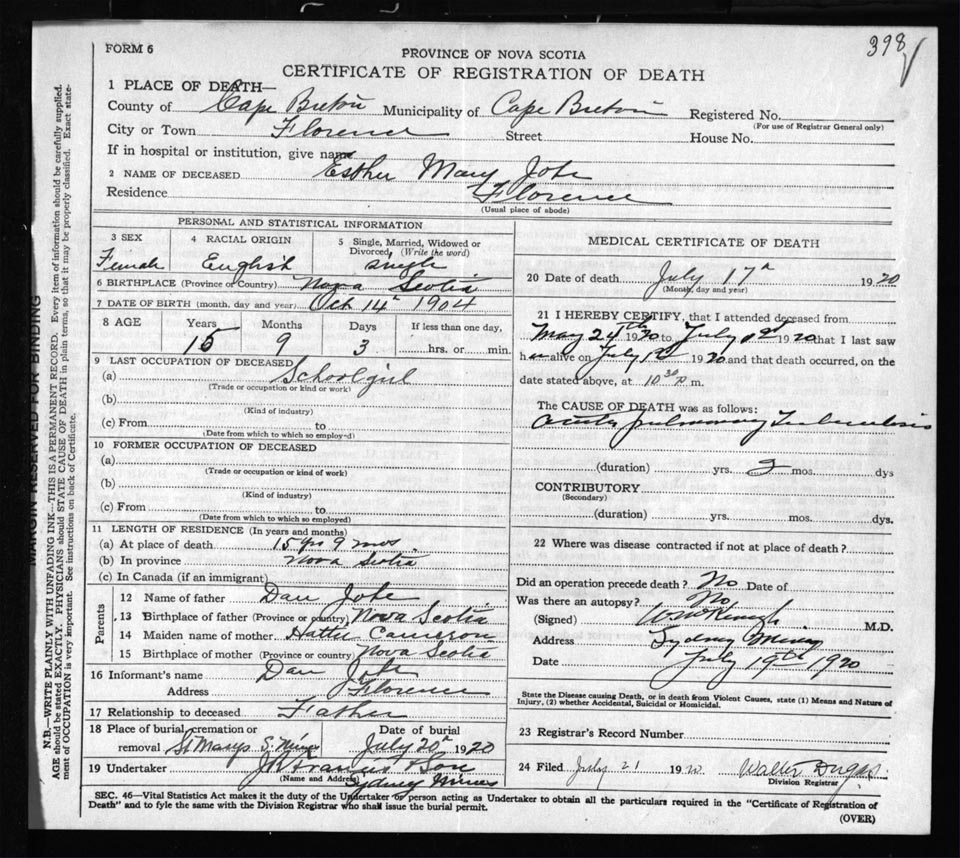 398
FORM 6
PROVINCE OF NOVA SCOTIA
CERTIFICATE OF REGISTRATION OF DEATH
1 PLACE OF DEATH—
County of Cape Breton Municipality of Cape Breton Registered No.
(For use of Registrar General only)
City or Town Florence Street House No.
If in hospital or institution, give name
2 NAME OF DECEASED Esther Mary
Residence Florence
(Usual place of abode)
PERSONAL AND STATISTICAL INFORMATION
3 SEX 4 RACIAL ORIGIN 5 Single, Married, Widowed or Divorced, (Write the word)
Female English single
6 BIRTHPLACE (Province or Country) Nova Scotia
7 DATE OF BIRTH (month, day and year) Oct 14th 1904
8 AGE Years Months Days If less than one day,
15 9 3 hrs. or min.
9 LAST OCCUPATION OF DECEASED
(a) Schoolgirl
(Trade or occupation or kind or work)
(b)
(Kind of industry)
(c) From to
(Date from which to which so employed)
10 FORMER OCCUPATION OF DECEASED
(a)
(Trade or occupation or kind of work)
(b)
(Kind of industry)
(c) From to
(Date from which to which so employed)
11 LENGTH OF RESIDENCE (In years and months)
(a) At place of death 15 yrs 9 mos.
(b) In province Nova Scotia
(c) In Canada (if an immigrant)
Parents
12 Name of father Dan
13 Birthplace of father (Province or country) Nova Scotia
14 Maiden name of mother Hattie Cameron
15 Birthplace of mother (Province or country) Nova Scotia
16 Informant's name Dan
Address Florence
17 Relationship to deceased Father
18 Place of burial, cremation or Date of burial
removal St Marys S. Mines July 20th 1920
19 Undertaker J R Francis & Son
(Name and Address) Sydney Mines
MEDICAL CERTIFICATE OF DEATH
20 Date of death July 17th 1920
(Month, day and year)
21 I HEREBY CERTIFY, that I attended deceased from
May 24th 1920 to July 1920 that I last saw
h er alive on July 1920 and that death occurred, on the
date stated above, at 10 30 P m.
The CAUSE OF DEATH was as follows:
Acute pulmonary Tuberculosis
(duration) yrs. 2 mos. dys
CONTRIBUTORY
(Secondary)
(duration) yrs. mos. dys.
22 Where was disease contracted if not at place of death?
Did an operation precede death? No Date of
Was there an autopsy? No
(Signed) M.D.
Address Sydney Mines
Date July 19th 1920
State the Disease causing Death, or in death from Violent Causes, state (1) Means and Nature of
Injury, (2) whether Accidental, Suicidal or Homicidal.
23 Registrar's Record Number
24 Filed July 21 1920 Walter
Division Registrar
SEC. 46—Vital Statistics Act makes it the duty of the Undertaker or person acting as Undertaker to obtain all the particulars required in the "Certificate of Registration of
Death" and to fyle the same with the Division Registrar who shall issue the burial permit.
(OVER)
MARGIN RESERVED FOR BINDING
N.B.—WRITE PLAINLY WITH UNFADING INK—THIS IS A PERMANENT RECORD. Every item of information should be carefully supplied.
AGE should be stated EXACTLY. PHYSICIANS should STATE CAUSE OF DEATH in plain terms, so that it may be properly classified. Exact state-
ment of OCCUPATION is very important. See instructions on back of Certificate.